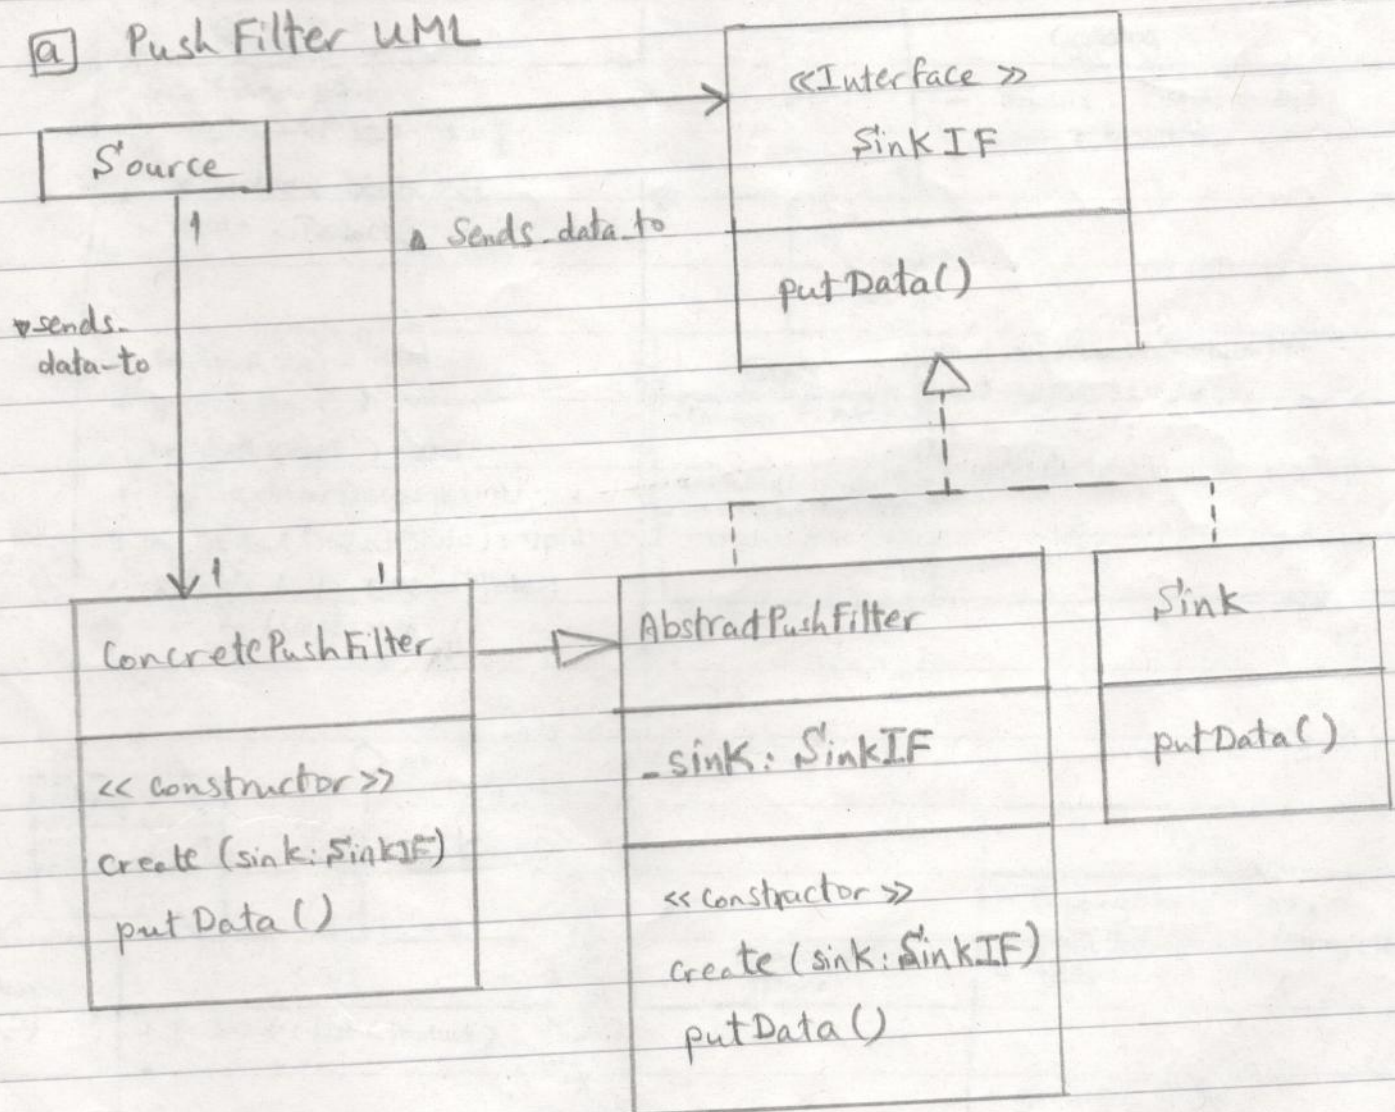 a Push Filter UML
Source
1
▾ sends_
data_to
1
▴ Sends_data_to
1
«Interface »
SinkIF
putData()
ConcretePushFilter
<< constructor >>
create (sink: SinkIF)
putData()
AbstractPushFilter
- sink: SinkIF
<< constructor >>
create (sink: SinkIF)
putData()
Sink
putData()